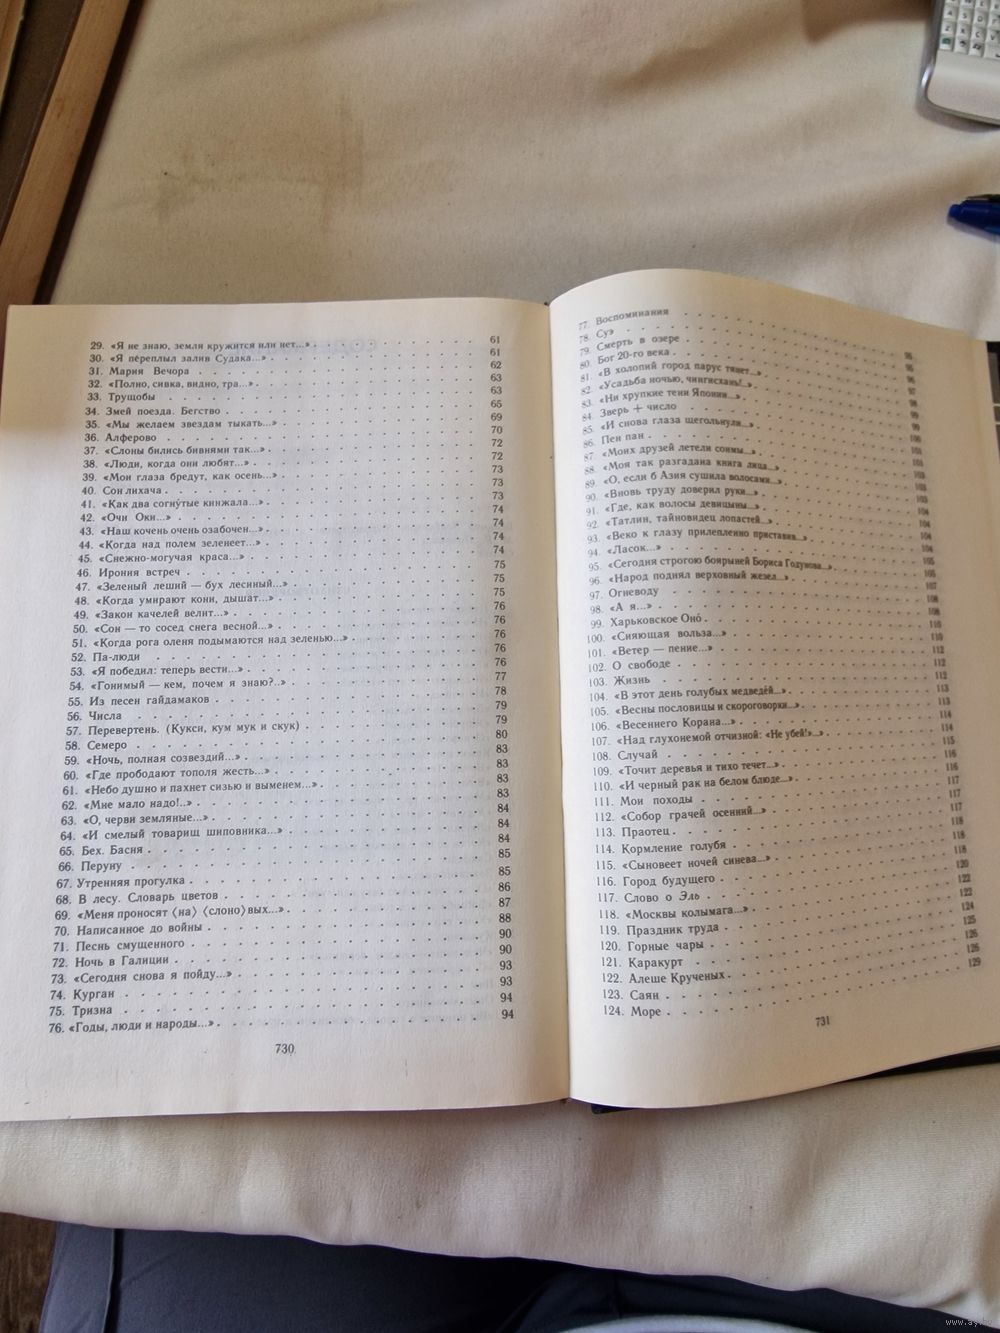 29. «Я не знаю, земля кружится или нет...» 61
30. «Я переплыл залив Судака...» 61
31. Мария Вечора 62
32. «Полно, сивка, видно, тра...» 63
33. Трущобы 63
34. Змей поезда. Бегство 65
35. «Мы желаем звездам тыкать...» 69
36. Алферово 70
37. «Слоны бились бивнями так...» 72
38. «Люди, когда они любят...» 72
39. «Мои глаза бредут, как осень...» 73
40. Сон лихача 73
41. «Как два согну́тые кинжала...» 73
42. «Очи Оки...» 74
43. «Наш кочень очень озабочен...» 74
44. «Когда над полем зеленеет...» 74
45. «Снежно-могучая краса...» 74
46. Ирония встреч 75
47. «Зеленый леший — бух лесиный...» 75
48. «Когда умирают кони, дышат...» 75
49. «Закон качелей велит...» 76
50. «Сон — то сосед снега весной...» 76
51. «Когда рога оленя подымаются над зеленью...» 76
52. Па-люди 76
53. «Я победил: теперь вести...» 76
54. «Гонимый — кем, почем я знаю?..» 77
55. Из песен гайдамаков 78
56. Числа 79
57. Перевертень. (Кукси, кум мук и скук) 79
58. Семеро 80
59. «Ночь, полная созвездий...» 83
60. «Где прободают тополя жесть...» 83
61. «Небо душно и пахнет сизью и выменем...» 83
62. «Мне мало надо!..» 83
63. «О, черви земляные...» 84
64. «И смелый товарищ шиповника...» 84
65. Бех. Басня 84
66. Перуну 85
67. Утренняя прогулка 85
68. В лесу. Словарь цветов 86
69. «Меня проносят ⟨на⟩ ⟨слоно⟩вых...» 87
70. Написанное до войны 88
71. Песнь смущенного 90
72. Ночь в Галиции 90
73. «Сегодня снова я пойду...» 93
74. Курган 93
75. Тризна 94
76. «Годы, люди и народы...» 94
730
77. Воспоминания
78. Суэ
79. Смерть в озере
80. Бог 20-го века
81. «В холопий город парус тянет...»
82. «Усадьба ночью, чингисхань!..»
83. «Ни хрупкие тени Японии...»
84. Зверь + число
85. «И снова глаза щегольнули...»
86. Пен пан
87. «Моих друзей летели сонмы...»
88. «Моя так разгадана книга лица...»
89. «О, если б Азия сушила волосами...»
90. «Вновь труду доверил руки...»
91. «Где, как волосы девицыны...»
92. «Татлин, тайновидец лопастей...»
93. «Веко к глазу прилепленно приставив...»
94. «Ласок...»
95. «Сегодня строгою боярыней Бориса Годунова...»
96. «Народ поднял верховный жезел...»
97. Огневоду
98. «А я...»
99. Харьковское Оно́
100. «Сияющая вольза...»
101. «Ветер — пение...»
102. О свободе
103. Жизнь
104. «В этот день голубых медведей...»
105. «Весны пословицы и скороговорки...»
106. «Весеннего Корана...»
107. «Над глухонемой отчизной: «Не убей!»...»
108. Случай
109. «Точит деревья и тихо течет...»
110. «И черный рак на белом блюде...»
111. Мои походы
112. «Собор грачей осенний...»
113. Праотец
114. Кормление голубя
115. «Сыновеет ночей синева...»
116. Город будущего
117. Слово о Эль
118. «Москвы колымага...»
119. Праздник труда
120. Горные чары
121. Каракурт
122. Алеше Крученых
123. Саян
124. Море
731